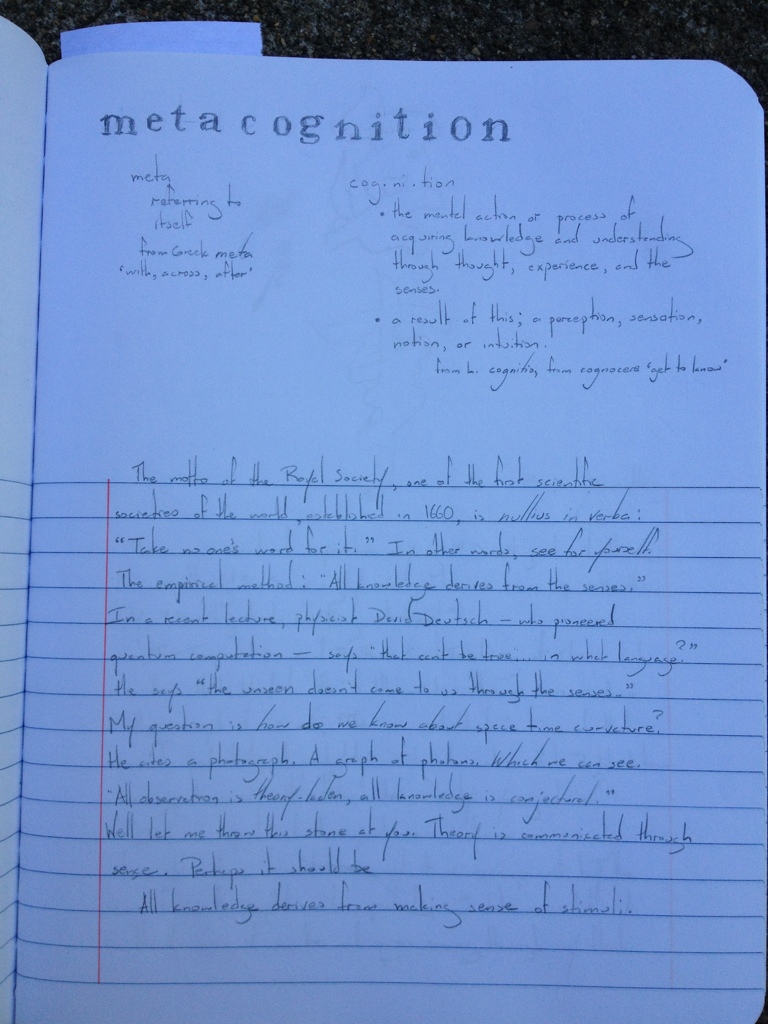 meta cognition
meta
referring to
itself
from Greek meta
'with, across, after'
cog.ni.tion
• the mental action or process of
acquiring knowledge and understanding
through thought, experience, and the
senses.
• a result of this; a perception, sensation,
notion, or intuition.
from L. cognitio, from cognocere 'get to know'
The motto of the Royal Society, one of the first scientific
societies of the world, established in 1660, is nullius in verba:
"Take no one's word for it." In other words, see for yourself.
The empirical method: "All knowledge derives from the senses."
In a recent lecture, physicist David Deutsch — who pioneered
quantum computation — says "that can't be true... in what language?"
He says "the unseen doesn't come to us through the senses."
My question is how do we know about space time curvature?
He cites a photograph. A graph of photons. Which we can see.
"All observation is theory-laden, all knowledge is conjectural."
Well let me throw this stone at you. Theory is communicated through
sense. Perhaps it should be
All knowledge derives from making sense of stimuli.